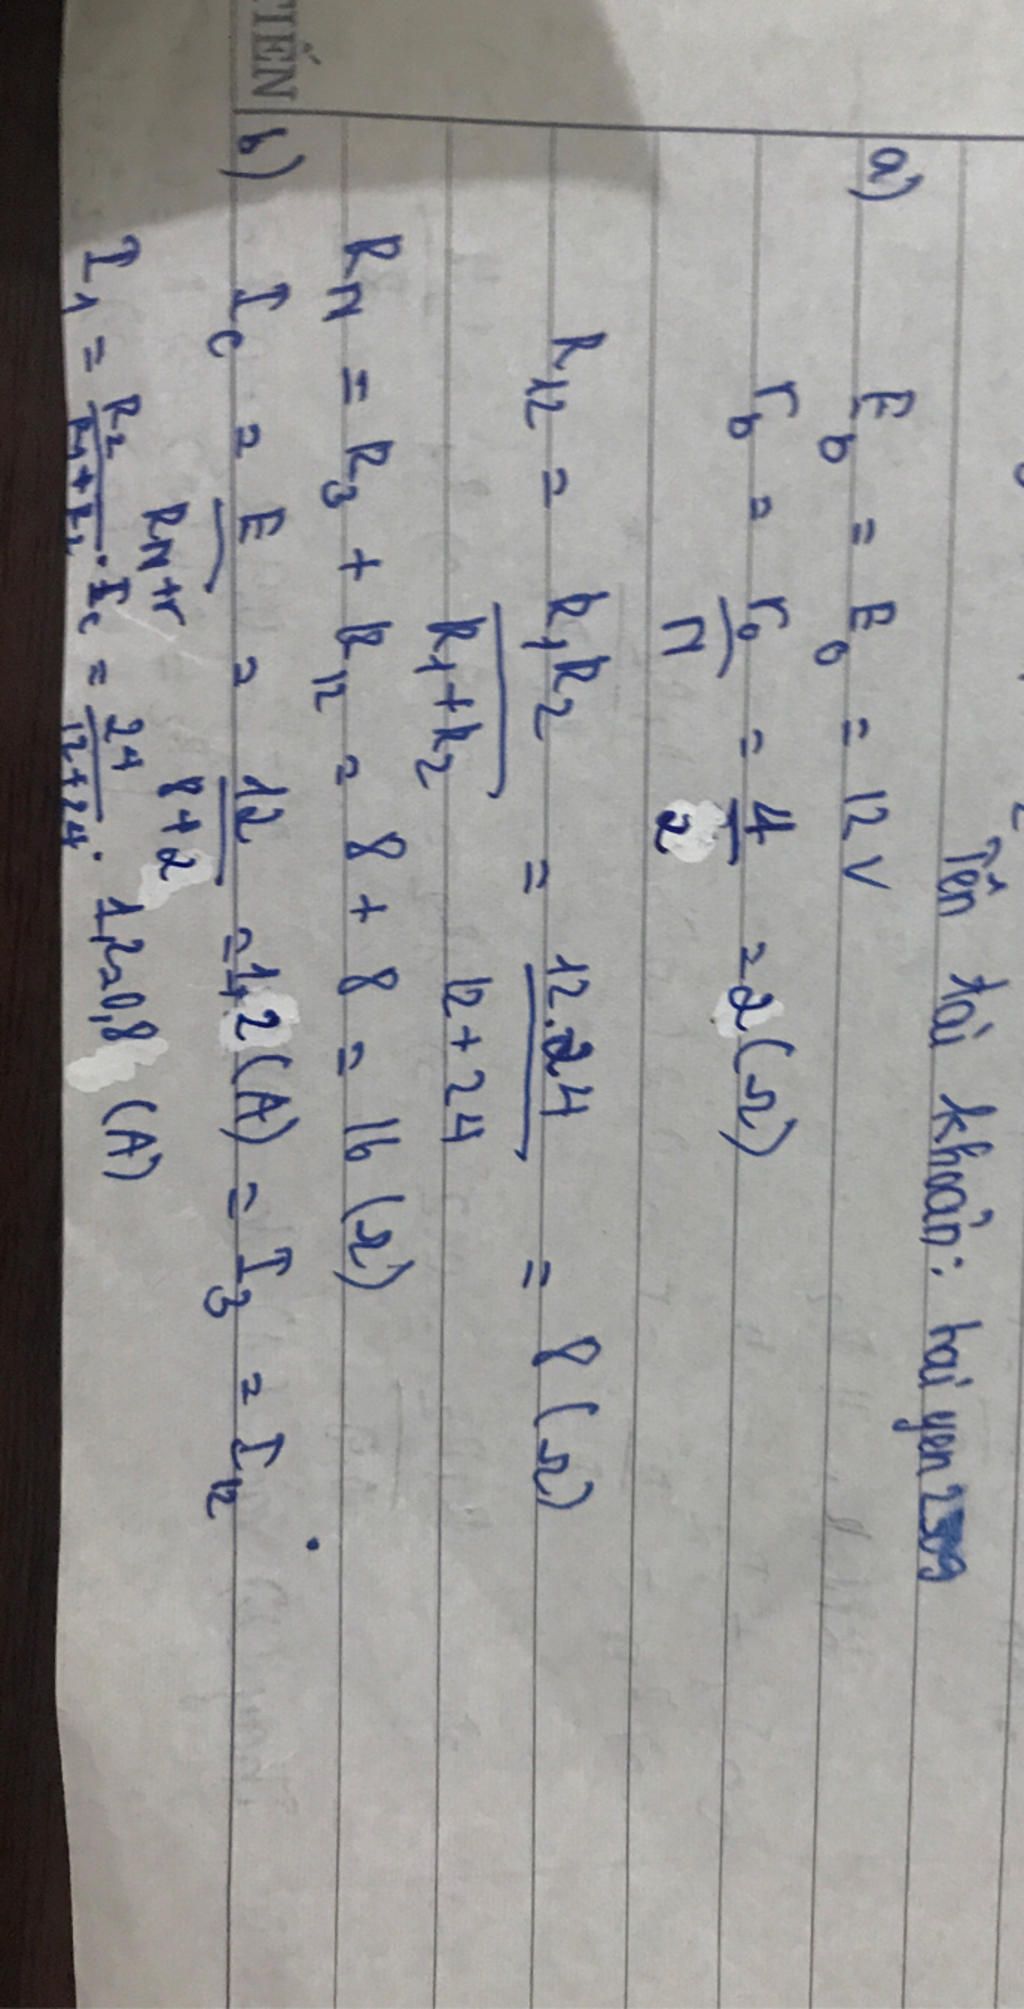 Tên tài khoản: hai yen 2309
a) E_b = E_0 = 12 V
r_b = r_0 / n = 4 / 2 = 2 (Ω)
R_12 = R_1 R_2 / R_1 + R_2 = 12.24 / 12 + 24 = 8 (Ω)
R_N = R_3 + R_12 = 8 + 8 = 16 (Ω)
TIẾN
b) I_c = E / R_N + r = 12 / 8 + 2 = 1,2 (A) = I_3 = I_12
I_1 = R_2 / R_1 + R_2 . I_c = 24 / 12 + 24 . 1,2 = 0,8 (A)